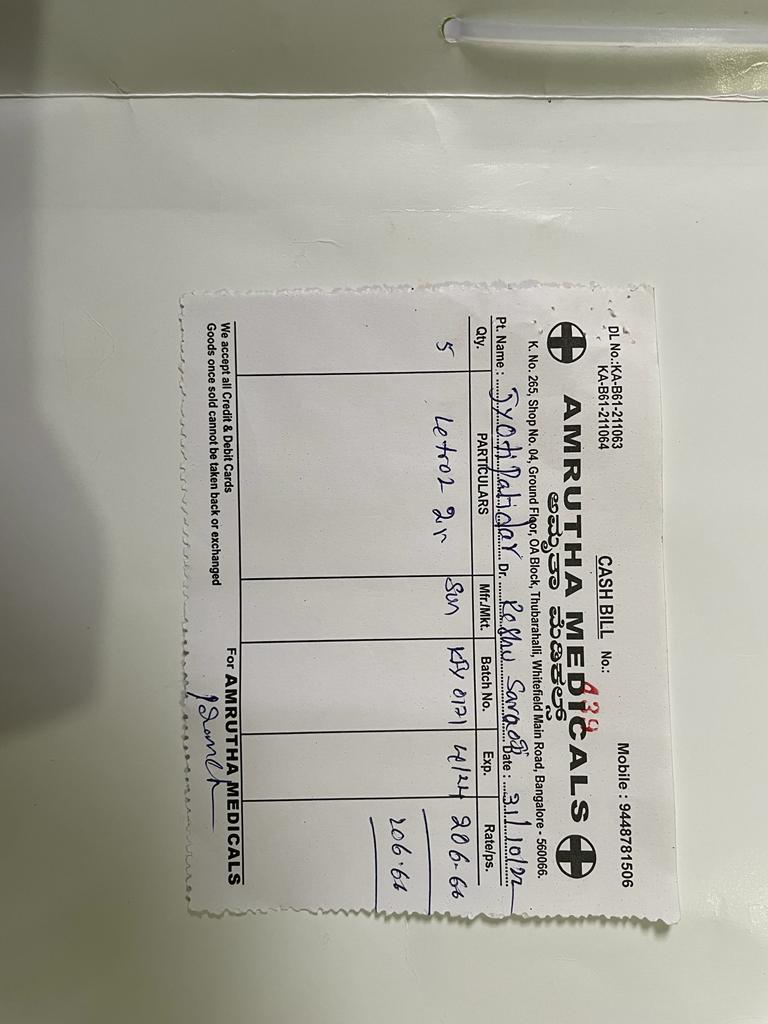 DL No.:KA-B61-211063
KA-B61-211064
Mobile : 9448781506
CASH BILL No.: 439
AMRUTHA MEDICALS
ಅಮೃತಾ ಮೆಡಿಕಲ್ಸ್
K. No. 265, Shop No. 04, Ground Floor, OA Block, Thubarahalli, Whitefield Main Road, Bangalore - 560066.
Pt. Name : Jyoti Patidar Dr. Reshu Saraogi Date : 31/10/22
Qty. PARTICULARS Mfr./Mkt. Batch No. Exp. Rate/ps.
5 Letroz Sun 0171 4/24 206.66
206.66
We accept all Credit & Debit Cards
Goods once sold cannot be taken back or exchanged
For AMRUTHA MEDICALS